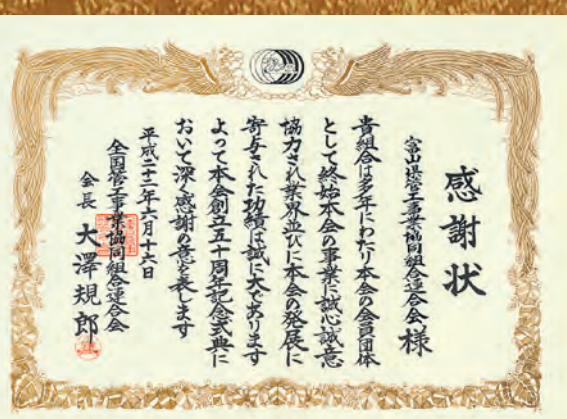 感謝状
富山県管工事業協同組合連合会様
貴組合は多年にわたり本会の会員団体
として終始本会の事業に誠心誠意
協力され業界並びに本会の発展に
寄与された功績は誠に大であります
よって本会創立五十周年記念式典に
おいて深く感謝の意を表します
平成二十二年六月十六日
全国管工事業協同組合連合会
会長 大澤規郎